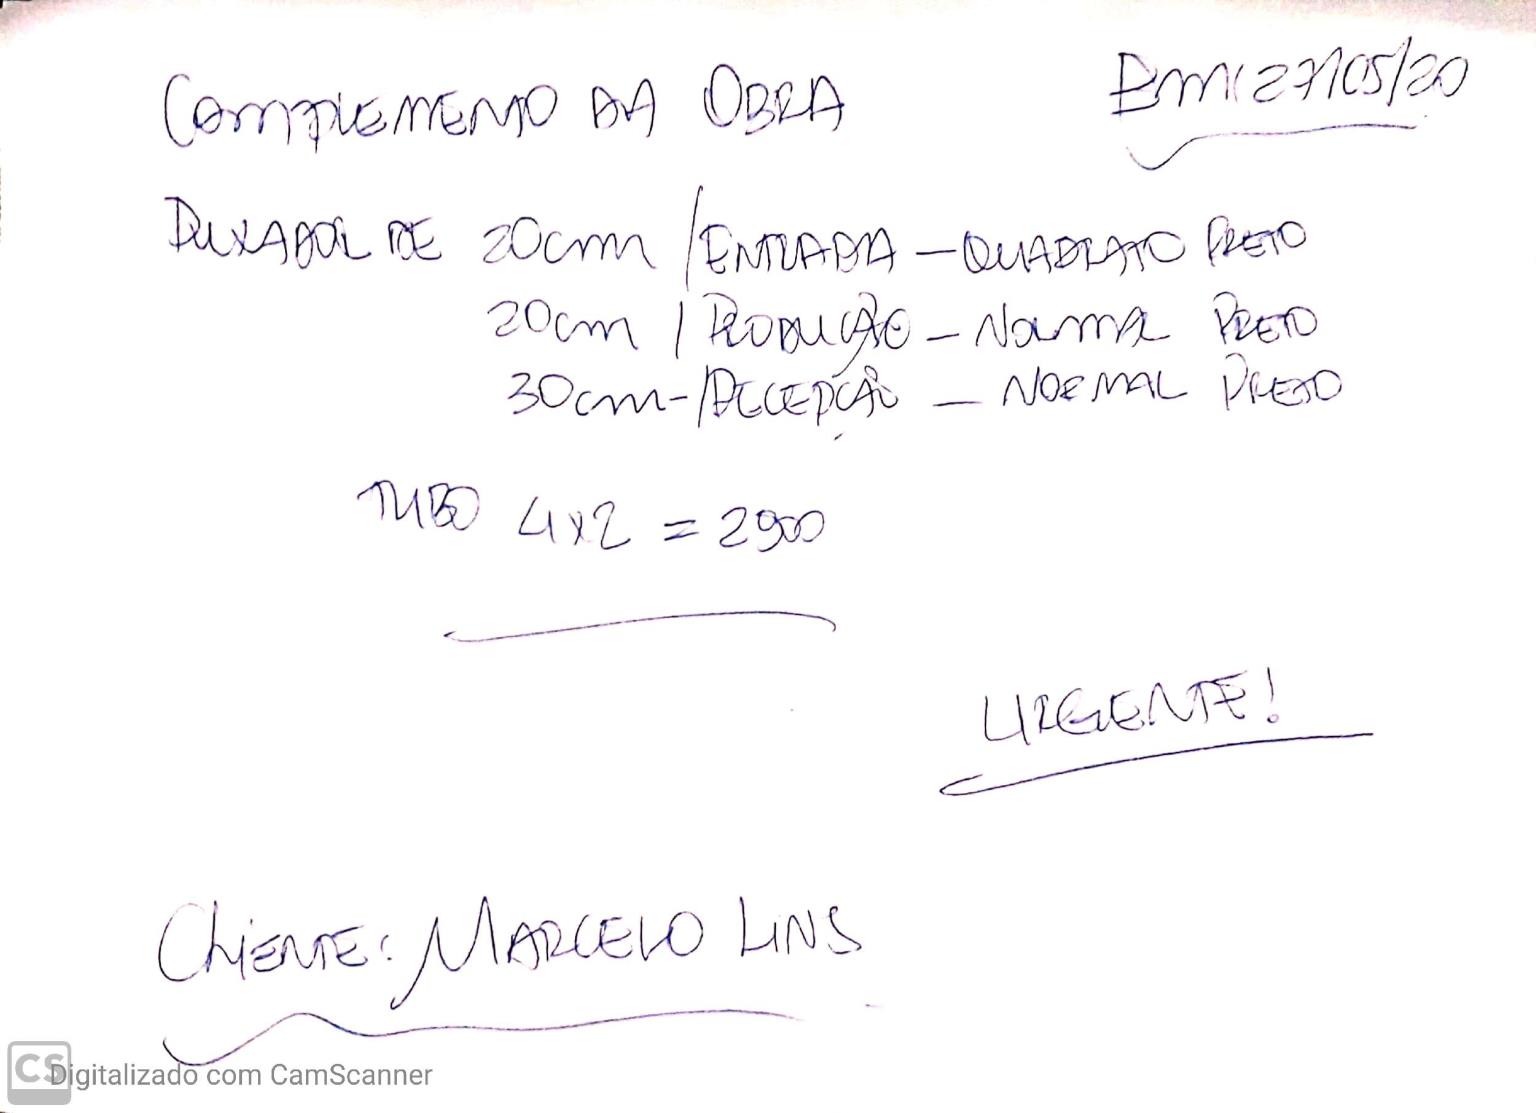 COMPLEMENTO DA OBRA
Em 27/05/20
PUXADOR DE 20cm / ENTRADA - QUADRATO PRETO
20cm / PRODUÇÃO - NORMAL PRETO
30cm - / RECEPÇÃO - NORMAL PRETO
TUBO 4x2 = 2900
URGENTE!
CLIENTE: MARCELO LINS
CS Digitalizado com CamScanner